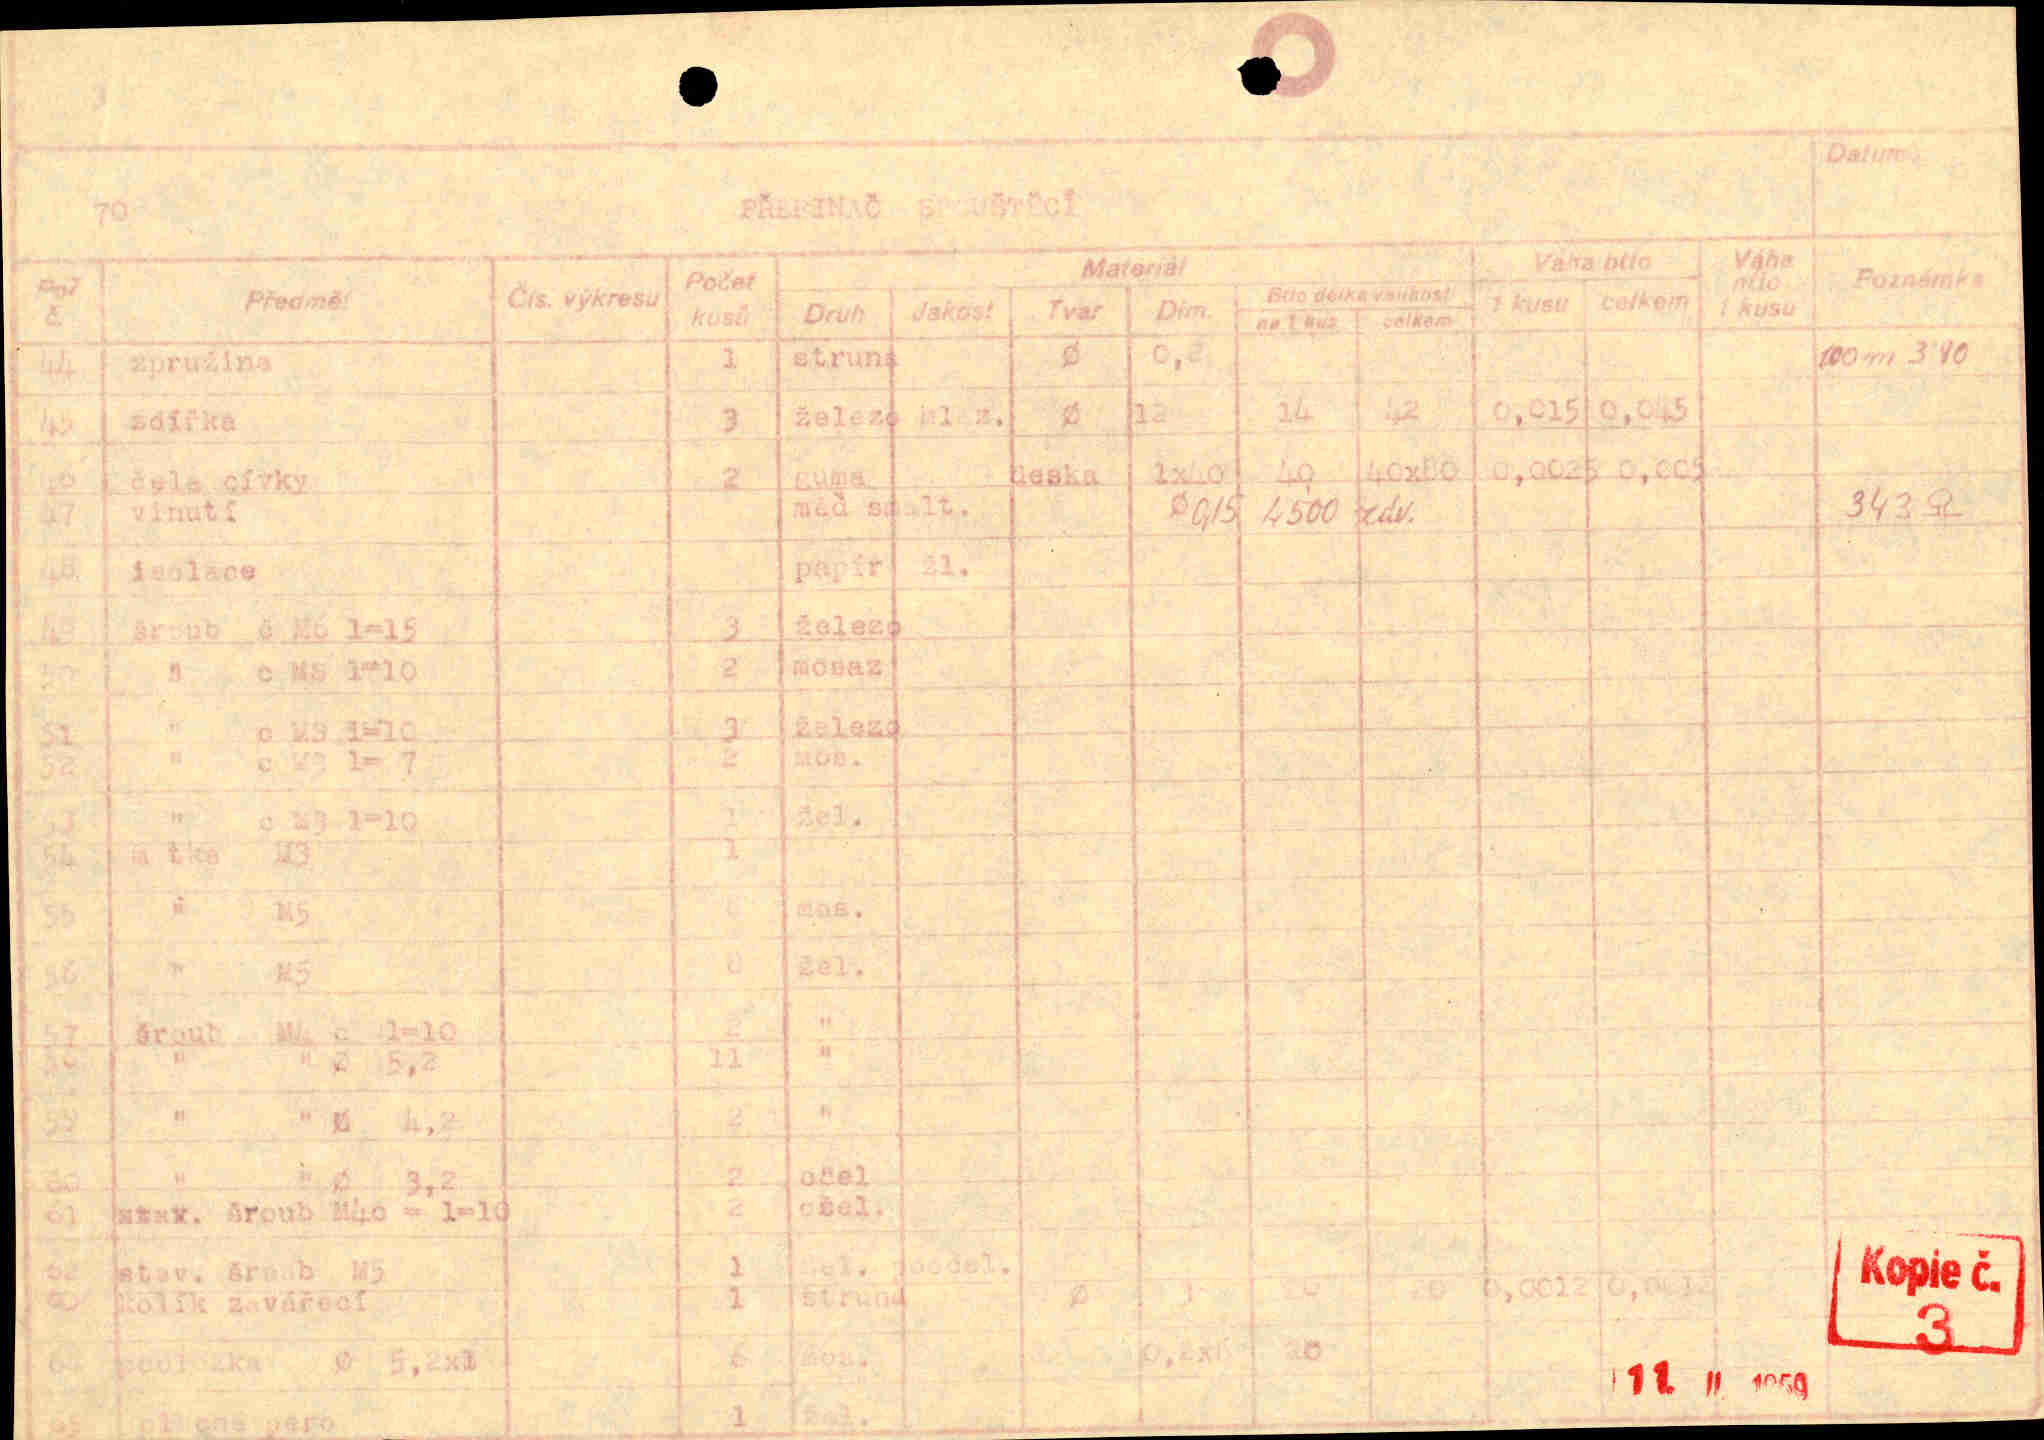 3
Datum
70 PŘEPINAČ SPOUŠTĚCÍ
Poř. č. Předmět Čís. výkresu Počet kusů Materiál Váha btto Váha ntto 1 kusu Poznámka
Druh Jakost Tvar Dim. Btto délka velikost 1 kusu celkem
na 1 kus celkem
44 zpružina 1 struna Ø 0,2 100m 3'80
45 zdířka 3 železo Ø 12 14 42 0,015 0,045
46 čela cívky 2 guma deska 1x40 40 40x80 0,0025 0,005
47 vinutí měď smalt. Ø 0,15 4500 343 Ω
48 isolace papír žl.
49 šroub č M6 l=15 3 železo
50 " c M8 l=10 2 mosaz
51 " c M3 l=10 3 železo
52 " c M3 l= 7 2 mos.
53 " c M3 l=10 1 žel.
54 matka M3 1
55 " M5 mos.
56 " M5 žel.
57 šroub M4 c l=10 2 "
" " Ø 5,2 11 "
59 " " Ø 4,2 2 "
60 " " Ø 3,2 2 očel
61 šroub M4o = l=10 2 očel.
62 stav. šroub M5 1 žel.
kolík zavářecí 1 struna Ø 20 20 0,0012 0,0012
64 podložka Ø 5,2x1 6 mos. 20
65 pero 1 žel.
Kopie č.
3
11. II 1959